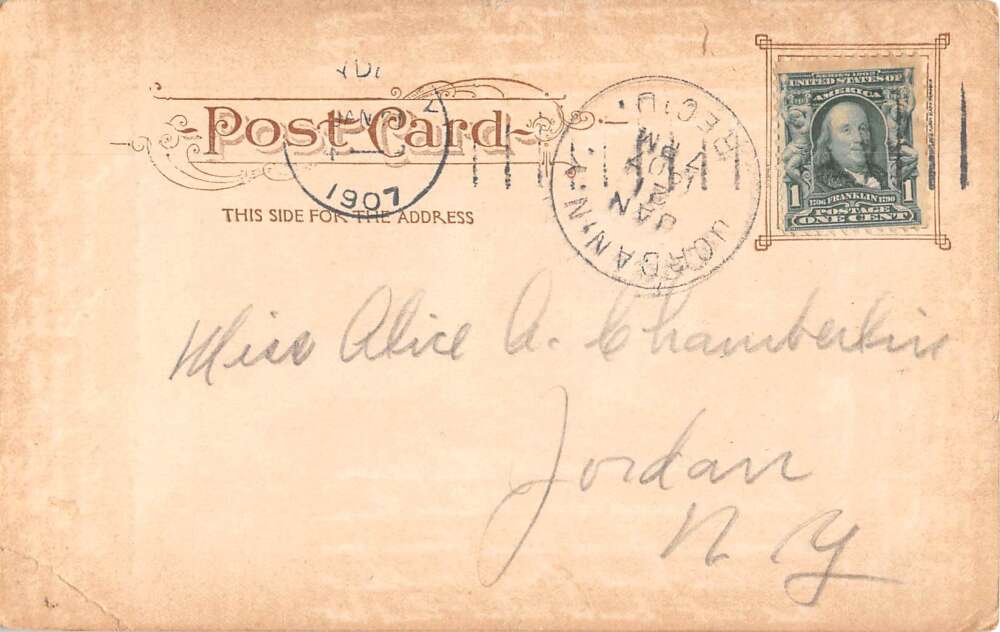 Post Card
THIS SIDE FOR THE ADDRESS
JAN
1907
JORDAN, N.Y.
REC'D.
JAN
SERIES 1902
UNITED STATES OF
AMERICA
1 1
1706 FRANKLIN 1790
POSTAGE
ONE CENT
Miss Alice A. Chamberlin
Jordan
N Y